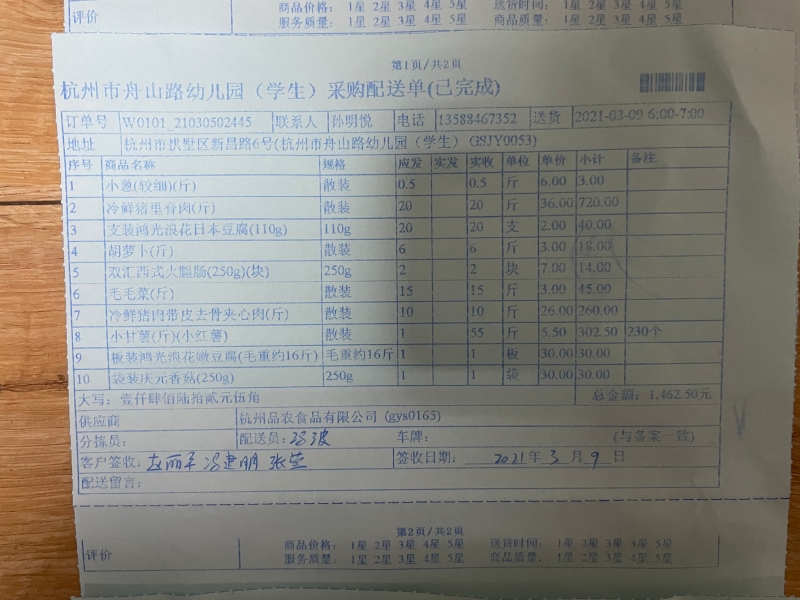 评价 商品价格： 1星 2星 3星 4星 5星 送货时间： 1星 2星 3星 4星 5星
服务质量： 1星 2星 3星 4星 5星 商品质量： 1星 2星 3星 4星 5星
第1页/共2页
杭州市舟山路幼儿园（学生）采购配送单(已完成)
订单号 W0101_21030502445 联系人 孙明悦 电话 13588467352 送货 2021-03-09 6:00-7:00
地址 杭州市拱墅区新昌路6号(杭州市舟山路幼儿园（学生） GSJY0053)
序号 商品名称 规格 应发 实发 实收 单位 单价 小计 备注
1 小葱(较细)(斤) 散装 0.5 0.5 斤 6.00 3.00
2 冷鲜猪里脊肉(斤) 散装 20 20 斤 36.00 720.00
3 支装鸿光浪花日本豆腐(110g) 110g 20 20 支 2.00 40.00
4 胡萝卜(斤) 散装 6 6 斤 3.00 18.00
5 双汇西式火腿肠(250g)(块) 250g 2 2 块 7.00 14.00
6 毛毛菜(斤) 散装 15 15 斤 3.00 45.00
7 冷鲜猪肉带皮去骨夹心肉(斤) 散装 10 10 斤 26.00 260.00
8 小甘薯(斤)(小红薯) 散装 1 55 斤 5.50 302.50 230个
9 板装鸿光浪花嫩豆腐(毛重约16斤) 毛重约16斤 1 1 板 30.00 30.00
10 袋装庆元香菇(250g) 250g 1 1 袋 30.00 30.00
大写：壹仟肆佰陆拾贰元伍角 总金额：1,462.50元
供应商 杭州品农食品有限公司 (gys0165)
分拣员： 配送员：冯波 车牌： (与备案一致)
客户签收：赵丽平 冯建明 张莹 签收日期： 2021年 3 月 9 日
配送留言：
第2页/共2页
评价 商品价格： 1星 2星 3星 4星 5星 送货时间： 1星 2星 3星 4星 5星
服务质量： 1星 2星 3星 4星 5星 商品质量： 1星 2星 3星 4星 5星